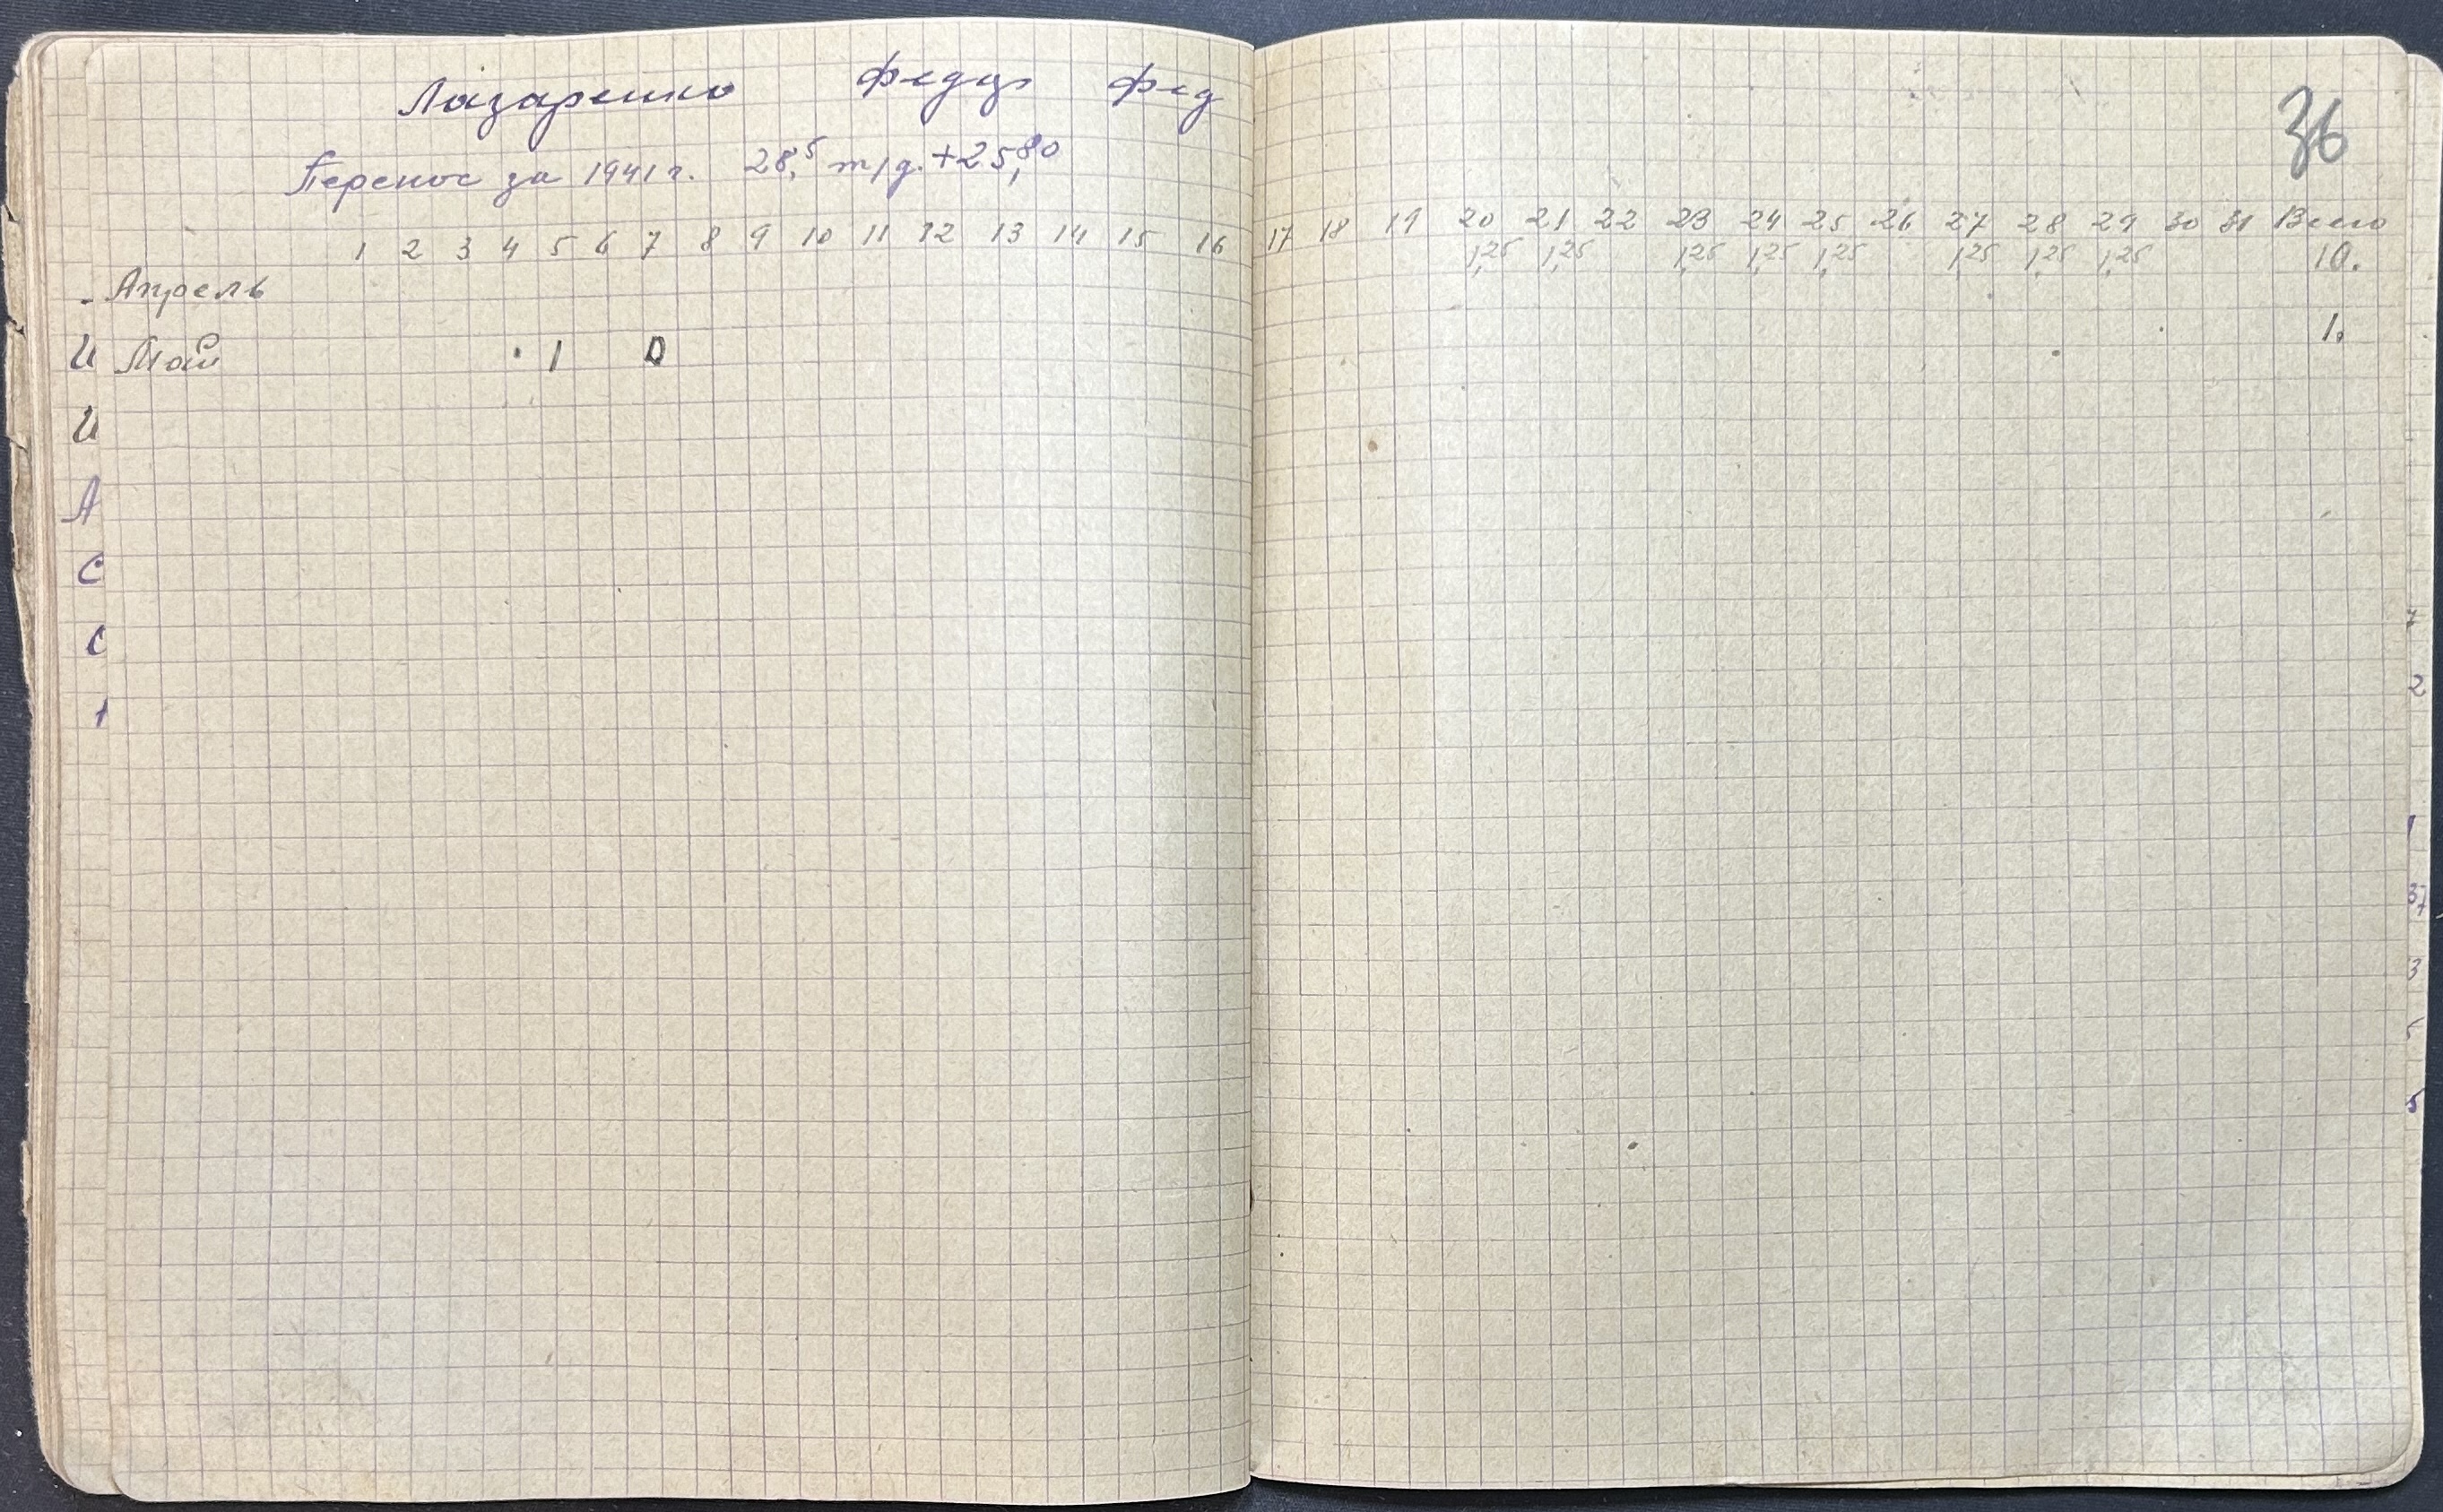 Лазаренко Федор Фед
36
Перенос за 1941 г. 28,5 т/д. + 25,80
1 2 3 4 5 6 7 8 9 10 11 12 13 14 15 16 17 18 19 20 21 22 23 24 25 26 27 28 29 30 31 Всего
Апрель 1,25 1,25 1,25 1,25 1,25 1,25 1,25 1,25 10.
Май 1 0 1.
И
И
А
С
С